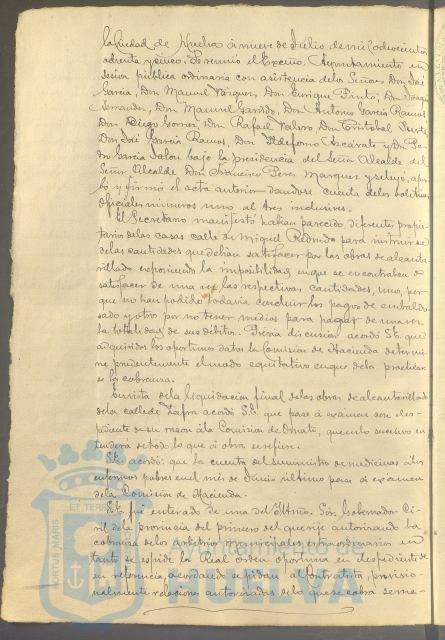 la Ciudad de Huelva á nueve de Julio de mil ochocientos
ochenta y cinco. Se reunió el Excmo. Ayuntamiento en
sesión pública ordinaria con asistencia de los Señores Don José
García, Don Manuel Vázquez, Don Enrique Pinto, Don Joaqn
Fernandez, Don Manuel Garrido, Don Antonio García Ramos
Don Diego Gomez, Don Rafael Don Cristobal
Don José García Ramos, Don Ildefonso Azcárate y Dn Pe-
dro García Jalon bajo la presidencia del Señor Alcalde del
Señor Alcalde Don Francisco Perez Marquez y se leyó, apro-
bó y firmó el acta anterior dandose cuenta de los boletines
oficiales números uno al tres inclusives.
El Secretario manifestó habian parecido diferentes propie-
tarios de las casas calle de Miguel Redondo para eximirse
de las cantidades que debian satisfacer por las obras de alcanta-
rillado exponiendo la imposibilidad en que se encontraban de
satisfacer de una vez las respectivas cantidades, unos, por
que no han podido todavia concluir los pagos de embaldo-
sado y otros por no tener medios para pagar de una vez
la totalidad de sus débitos. Prévia discusion acordó S.E. que
adquiridos los oportunos datos la Comision de Hacienda determi-
ne prudentemente el modo equitativo en que deba practicar
se la cobranza.
En vista de la liquidacion final de las obras de alcantarillado
de la calle de Zafra acordó S.E. que pase á exámen con el es-
pediente de su razon á la Comision de Ornato, que en lo sucesivo en-
tenderá de todo lo que á obras se refiere.
S.E. acordó que la cuenta del suministro de medicinas á los
enfermos pobres en el mes de Junio último pase á exámen
de la Comision de Hacienda.
S.E. fué enterado de una del Iltmo. Sor. Gobernador Ci-
vil de la provincia del primero del que rije autorizando la
cobranza de los arbitrios municipales extraordinarios en
tanto se expide la Real orden oportuna en el expediente de
su referencia, acordando se pidan al Contratista, provisio-
nalmente relaciones autorizadas de lo que se cobra sema-
PORTUS MARIS ET TERRAE
Ayuntamiento de
HUELVA